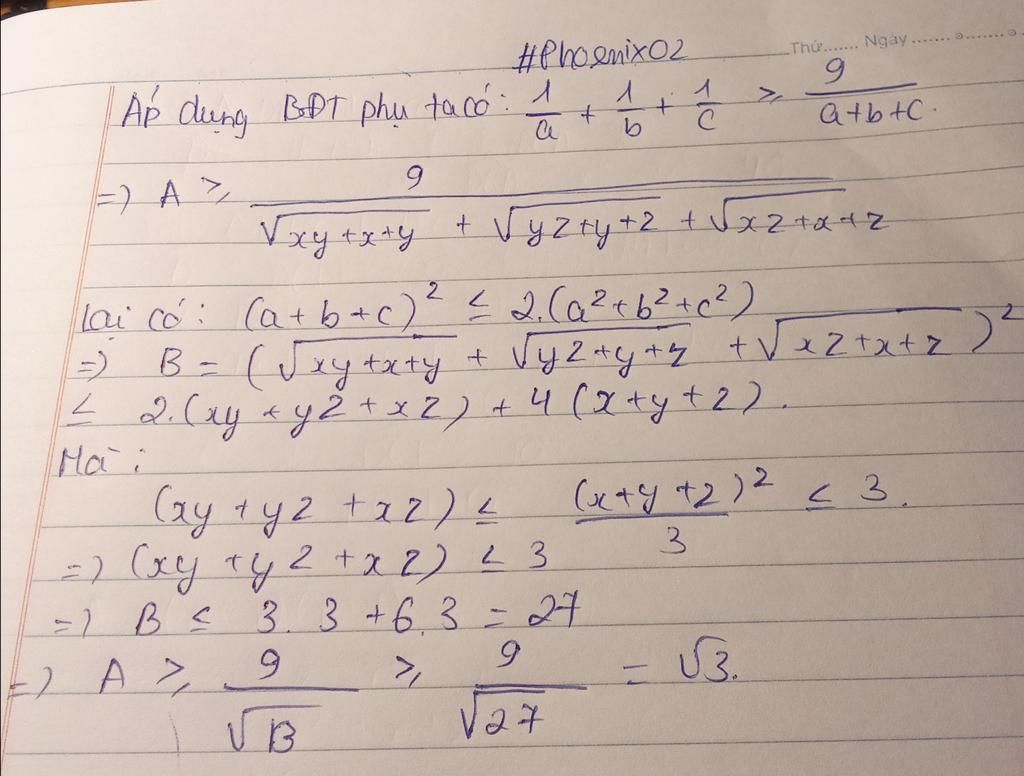 #Phoenix02
Thứ....... Ngày .......
Áp dụng BĐT phụ ta có: 1/a + 1/b + 1/c ≥ 9/(a+b+c).
=) A ≥ 9/(√(xy+x+y) + √(yz+y+z) + √(xz+x+z))
Lại có: (a+b+c)² ≤ 2.(a²+b²+c²)
=) B = (√(xy+x+y) + √(yz+y+z) + √(xz+x+z))²
≤ 2.(xy+yz+xz) + 4(x+y+z).
Mà:
(xy+yz+xz) ≤ (x+y+z)²/3 ≤ 3.
=) (xy+yz+xz) ≤ 3
=) B ≤ 3.3+6.3 = 27
=) A ≥ 9/√B ≥ 9/√27 = √3.